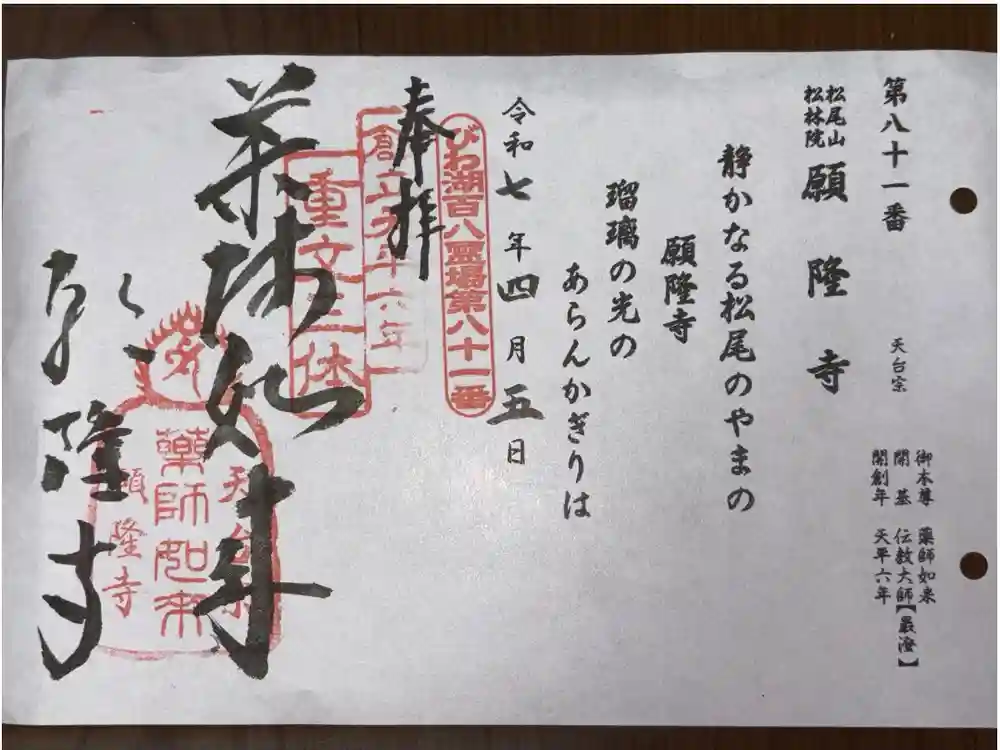 第八十一番
松尾山
松林院
願隆寺
天台宗
御本尊 薬師如来
開基 伝教大師【最澄】
開創年 天平六年
静かなる松尾のやまの
願隆寺
瑠璃の光の
あらんかぎりは
令和七年四月五日
びわ湖百八霊場第八十一番
奉拝
創立天平六年
重文三体
薬師如来
天台宗
薬師如来
願隆寺
願隆寺